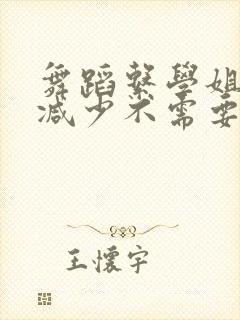 舞蹈繫學姐
減少不需要
王懷宇